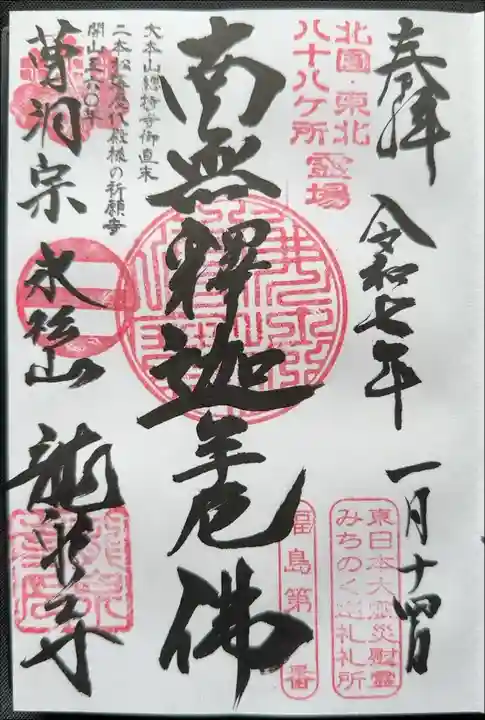 奉拝
令和七年
一月十四日
北国・東北
八十八ケ所
霊場
東日本大震災慰霊
みちのく巡礼札所
福島第
番
南無釋迦牟尼佛
大本山總持寺御直末
二本松藩歴代殿様の祈願寺
曹洞宗
永松山
龍泉寺